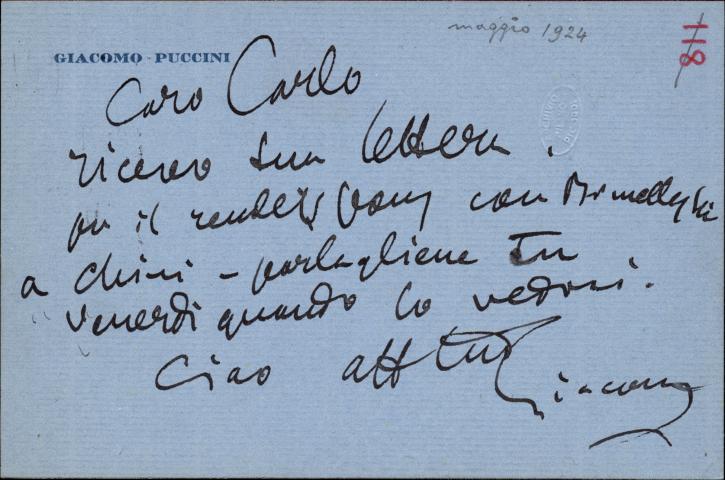 maggio 1924
118
GIACOMO PUCCINI
Caro Carlo
ricevo tua lettera.
per il rendez vous con Brunelleschi
a Chini - parlagliene Tu
venerdi quando lo vedrai.
Ciao aff tuo
Giacomo